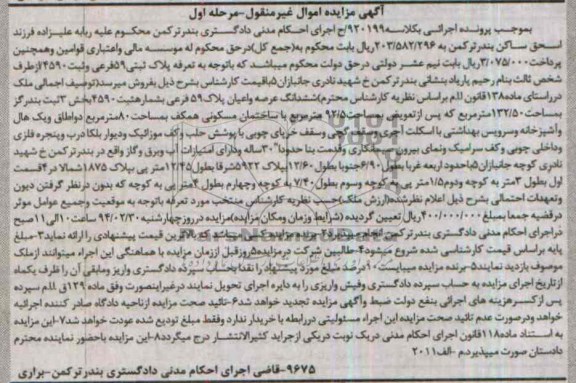 آگهی مزایده اموال غیرمنقول-مرحله اول
بموجب پرونده اجرائی بکلاسه ۹۲۰۱۹۹/ح اجرای احکام مدنی دادگستری بندرترکمن محکوم علیه ربابه علیزاده فرزند
اسحق ساکن بندرترکمن به ۲۰۳/۵۸۲/۲۹۶ریال بابت محکوم به(جمع کل)درحق محکوم له موسسه مالی واعتباری قوامین وهمچنین
پرداخت۳/۰۷۵/۰۰۰ریال بابت نیم عشر دولتی درحق دولت محکوم میباشد که باتوجه به تعرفه پلاک ثبتی۵۹فرعی وثبت۴۵۹۰ازطرف
شخص ثالث بنام رحیم پاریاد بنشانی بندرترکمن خ شهید نادری جانبازان۵باقیمت کارشناس بشرح ذیل بفروش میرسد(توصیف اجمالی ملک
درراستای ماده۱۳۸قانون ا.ا.م براساس نظریه کارشناس محترم)ششدانگ عرصه واعیان پلاک۵۹ فرعی بشماره ثبت۴۵۹۰بخش۳ثبت بندرگز
بمساحت۱۳۲/۵۰مترمربع که پس ازتعویض بمساحت۹۷/۵ مترمربع با ساختمان مسکونی همکف بمساحت۸۰مترمربع دواطاق ویک هال
وآشپزخانه وسرویس بهداشتی با اسکلت آجری گچی وسقف خرپای چوبی با پوشش حلب وکف موزائیک ودیوار بلکا درب وپنجره فلزی
وداخلی چوبی وکف سرامیک ونمای بیرون سیمانکاری وقدمت بنا حدودا"۳۰ساله ودارای امتیازات آب وبرق وگاز واقع در بندرترکمن خ شهید
نادری کوچه جانبازان۵باحدود اربعه غربا بطول۶/۹۰جنوبا بطول۱۲/۶۰بپلاک ۵۹۲۲شرقا بطول۱۲/۴۵متر پی بپلاک ۱۸۷۵شمالا در۴قسمت
اول بطول ۳متر به کوچه ودوم۱/۵متر پی به کوچه وسوم بطول۷/۴۰ به کوچه وچهارم بطول ۴متر پی به کوچه که بدون درنظر گرفتن دیون
وتعهدات احتمالی بشرح ذیل اعلام نظر شده(ارزش ملک)حسب نظریه کارشناس منتخب مورد تعرفه باتوجه به موقعیت وجمیع عوامل موثر
درقضیه جمعا بمبلغ۴۰۰/۰۰۰/۰۰۰ریال تعیین گردیده (شرایط وزمان ومکان مزایده)مزایده درروزچهارشنبه ۹۴/۰۲/۳۰ ساعت۱۰الی۱۱صبح
دراجرای احکام مدنی دادگستری بندرترکمن انجام میشود۲-برنده مزایده کسی میباشد که بالاترین قیمت پیشنهادی را ارائه نماید۳-مبلغ
پایه براساس قیمت کارشناسی شده شروع میشود۴-طالبین شرکت درمزایده۵روزقبل اززمان مزایده با هماهنگی این اجراء میتوانند ازملک
موصوف بازدید نمایند۵-برنده مزایده میبایست۱۰درصد مبلغ مورد پیشنهاد را نقدا بحساب سپرده دادگستری واریز ومابقی آن را ظرف یکماه
ازتاریخ اجرای مزایده به حساب سپرده دادگستری وفیش واریزی را به دایره اجرای تحویل نمایند درغیراینصورت وفق ماده ۱۲۹ق.ا.ا.م سپرده
پس ازکسرهزینه های اجرائی بنفع دولت ضبط وآگهی مزایده تجدید خواهد شد۶-تائید صحت مزایده ازناحیه دادگاه صادر کننده اجرائیه
خواهد ودرصورت عدم تائید صحت مزایده این اجراء مسئولیتی دررابطه با خریدار ندارد وفقط مبلغ تودیع شده عودت خواهد شد۷-این مزایده
به استناد ماده۱۱۸قانون اجرای احکام مدنی دریک نوبت دریکی ازجراید کثیرالانتشار درج میگردد۸-این مزایده باحضور نماینده محترم
دادستان صورت میپذیردم-الف۲۰۱۱
۹۶۷۵-قاضی اجرای احکام مدنی دادگستری بندرترکمن-براری